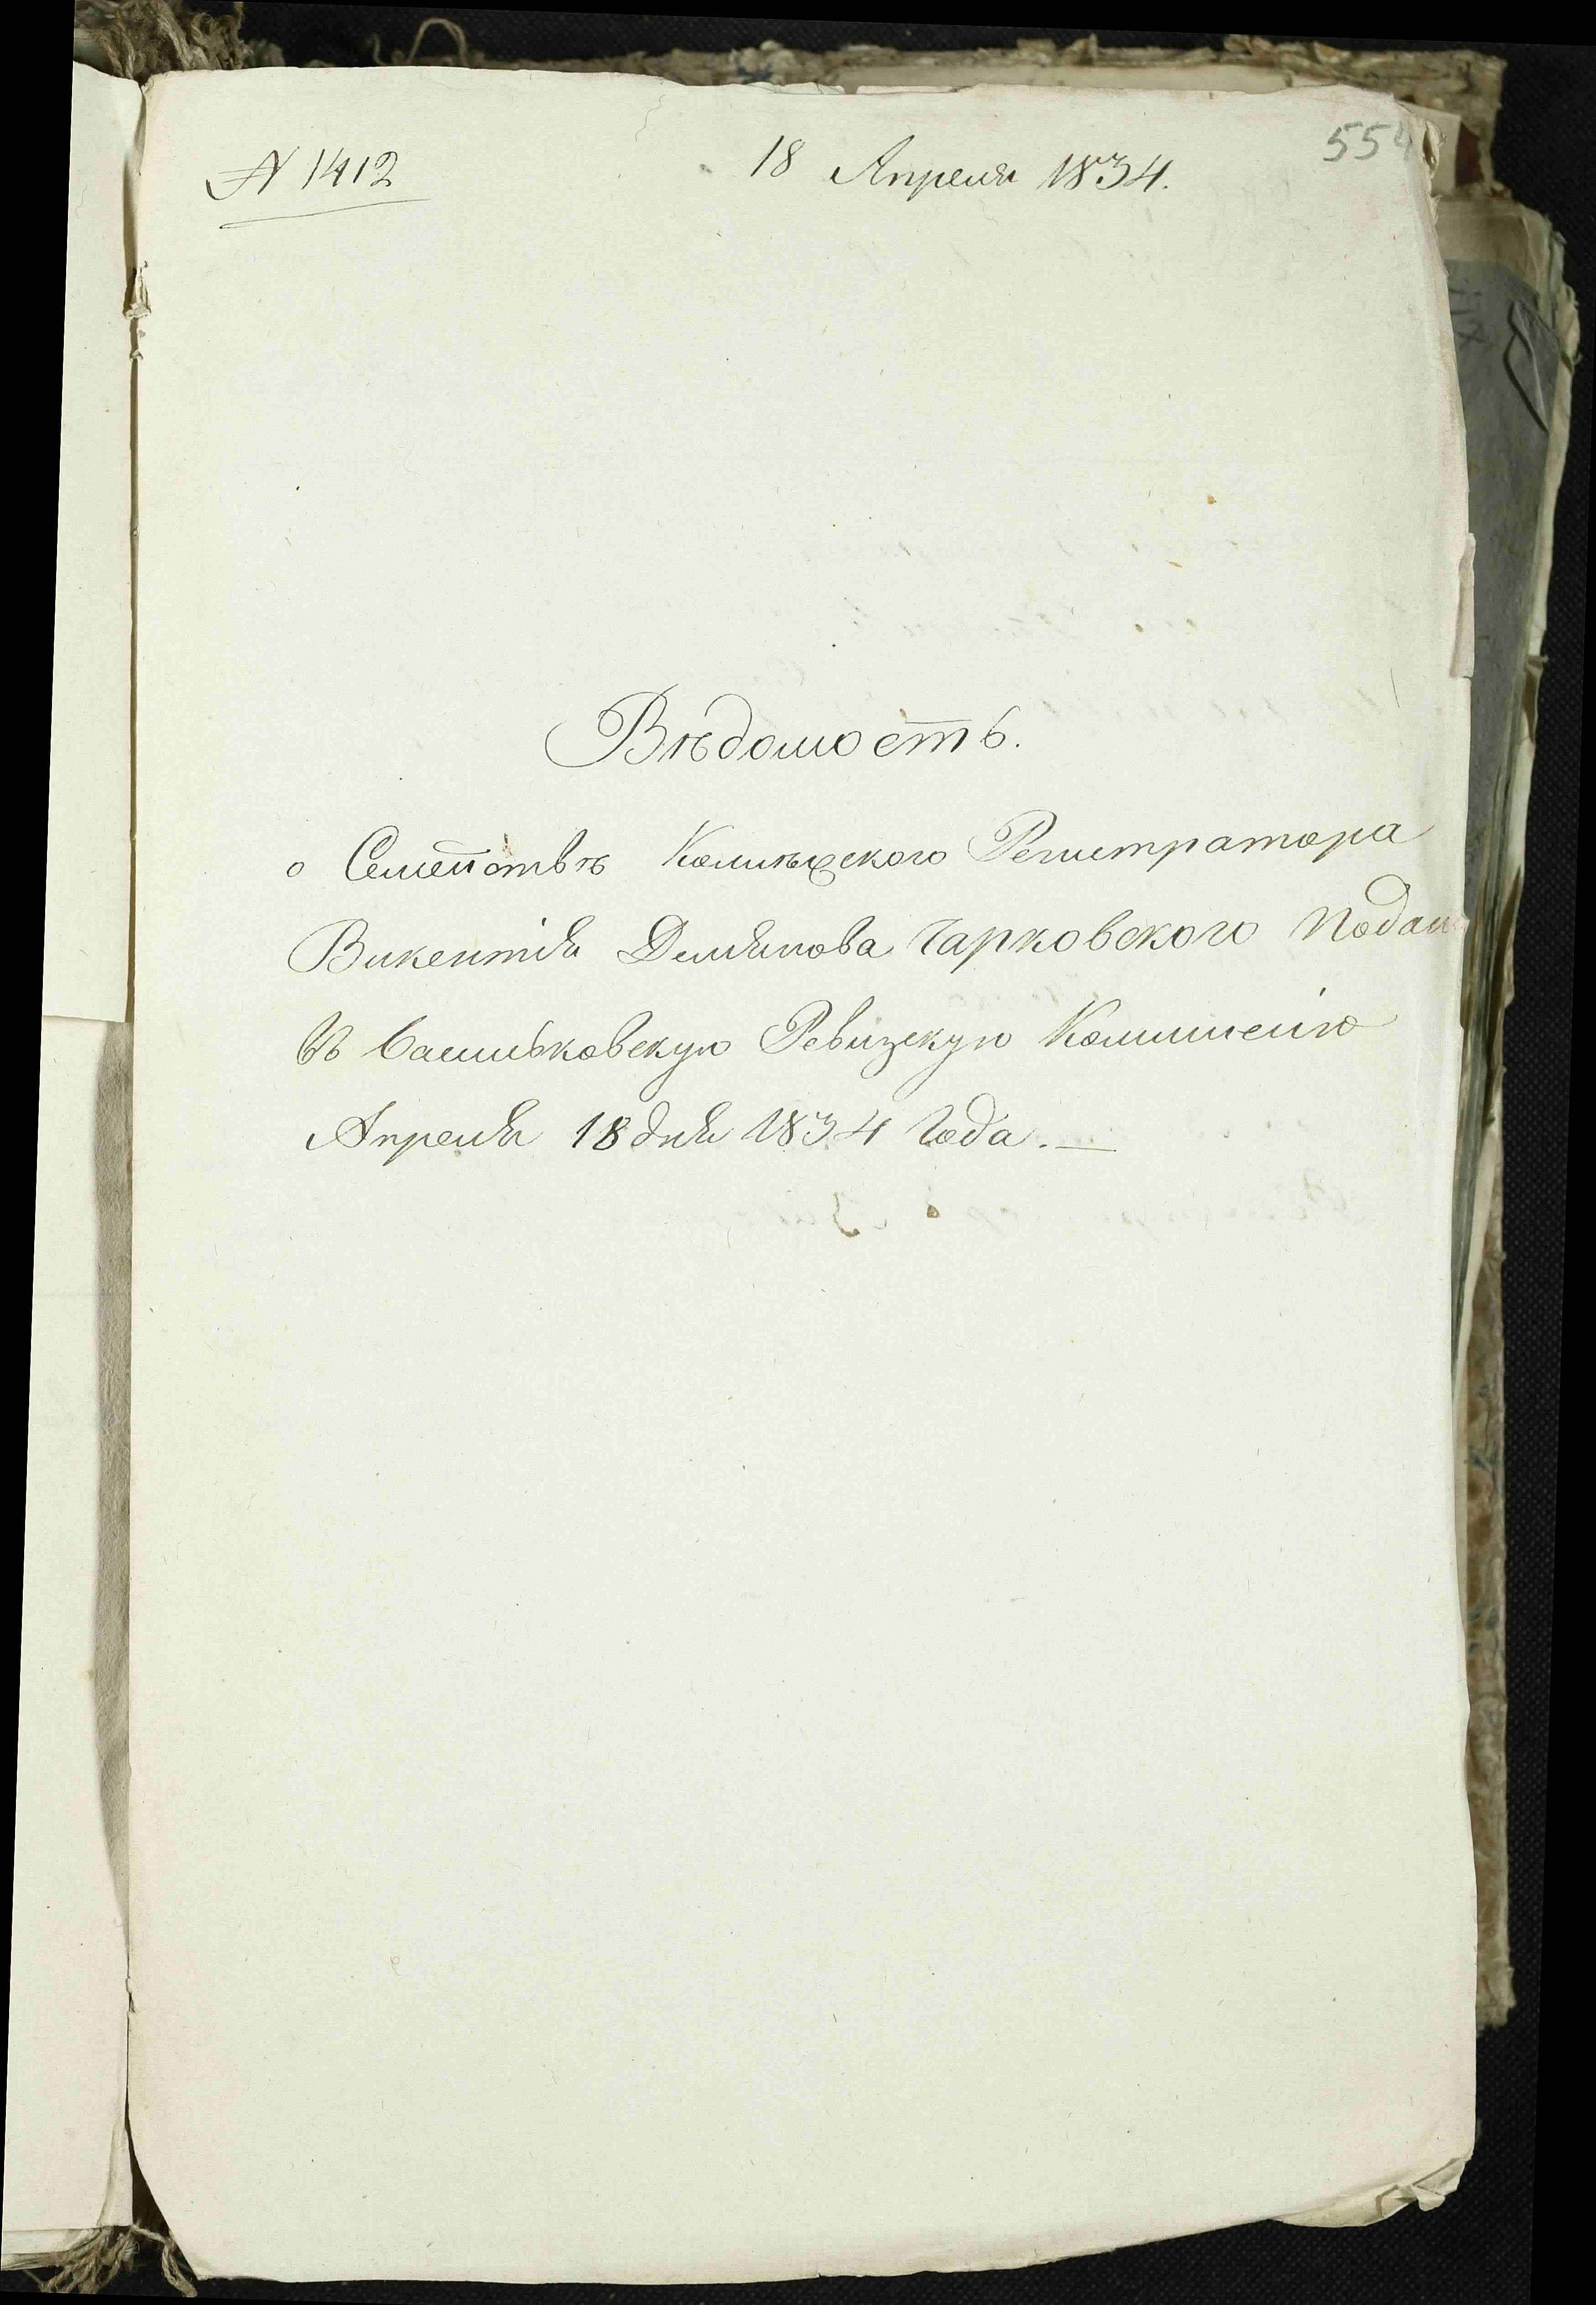 № 1412
18 Апреля 1834.
554
Вѣдомость.
о Семействѣ Колижского Регистратора
Викентія Демянова Чарковского Подан
Въ Васильковскую Ревизскую Коммисію
Апреля 18 дня 1834 Года.—